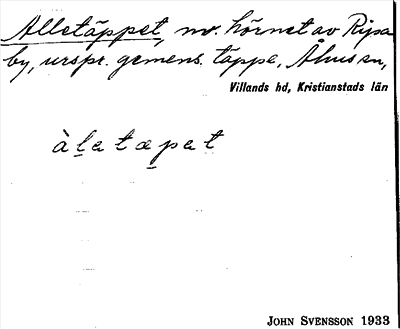 Alletäppet, nv. hörnet av Ripa
by, urspr. gemens. täppe. Åhus sn,
Villands hd, Kristianstads län
àḷetæpet
JOHN SVENSSON 1933